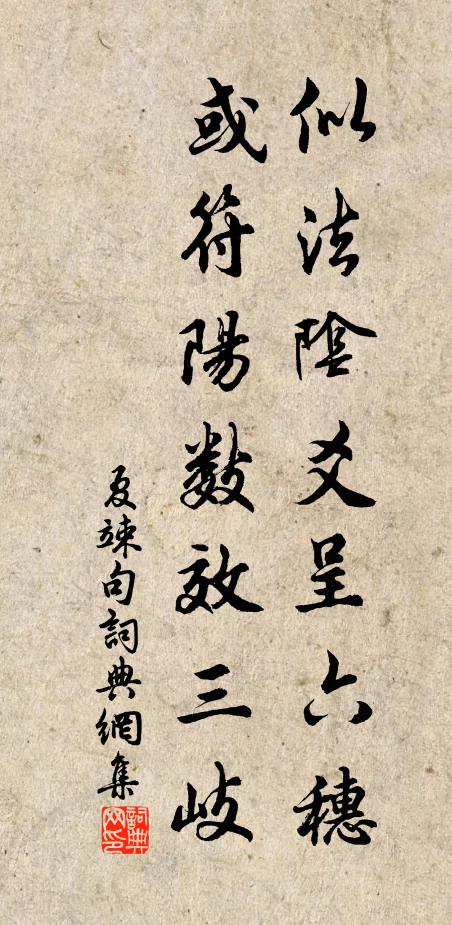 似法陰爻呈六穗
或符陽數效三岐
夏竦句詞典網集
詞典网印